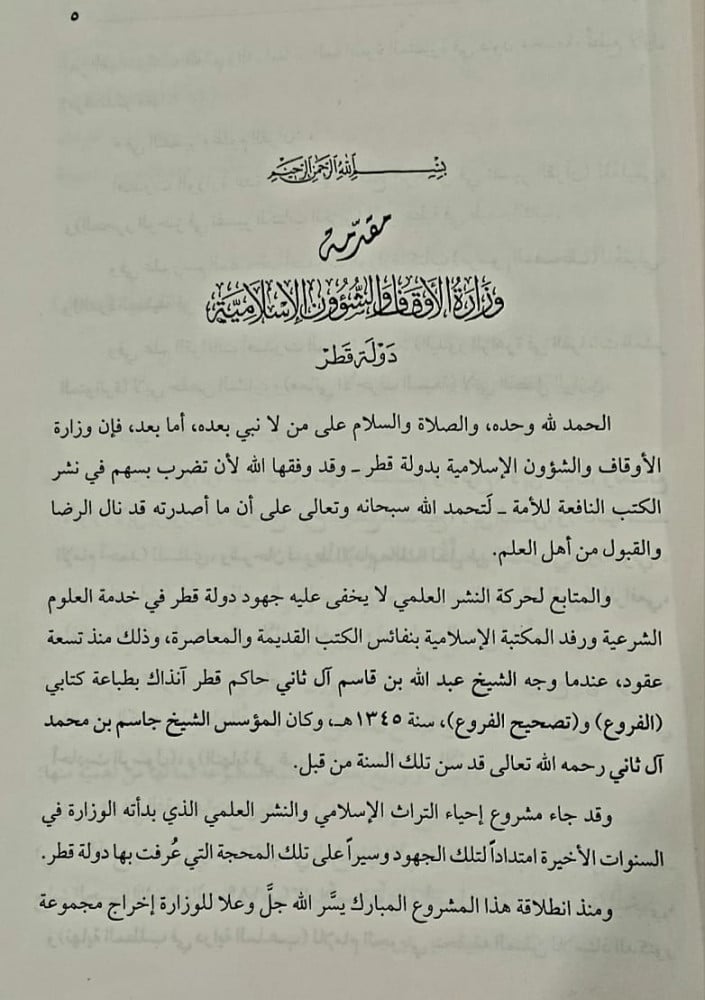 ٥
بسم الله الرحمن الرحيم
مقدّمة
وزارة الأوقاف والشؤون الإسلاميّة
دولة قطر
الحمد لله وحده، والصلاة والسلام على من لا نبي بعده، أما بعد، فإن وزارة
الأوقاف والشؤون الإسلامية بدولة قطر ـ وقد وفقها الله لأن تضرب بسهم في نشر
الكتب النافعة للأمة ـ لَتحمد الله سبحانه وتعالى على أن ما أصدرته قد نال الرضا
والقبول من أهل العلم.
والمتابع لحركة النشر العلمي لا يخفى عليه جهود دولة قطر في خدمة العلوم
الشرعية ورفد المكتبة الإسلامية بنفائس الكتب القديمة والمعاصرة، وذلك منذ تسعة
عقود، عندما وجه الشيخ عبد الله بن قاسم آل ثاني حاكم قطر آنذاك بطباعة كتابي
(الفروع) و(تصحيح الفروع)، سنة ١٣٤٥هـ، وكان المؤسس الشيخ جاسم بن محمد
آل ثاني رحمه الله تعالى قد سن تلك السنة من قبل.
وقد جاء مشروع إحياء التراث الإسلامي والنشر العلمي الذي بدأته الوزارة في
السنوات الأخيرة امتداداً لتلك الجهود وسيراً على تلك المحجة التي عُرفت بها دولة قطر.
ومنذ انطلاقة هذا المشروع المبارك يسَّر الله جلَّ وعلا للوزارة إخراج مجموعة